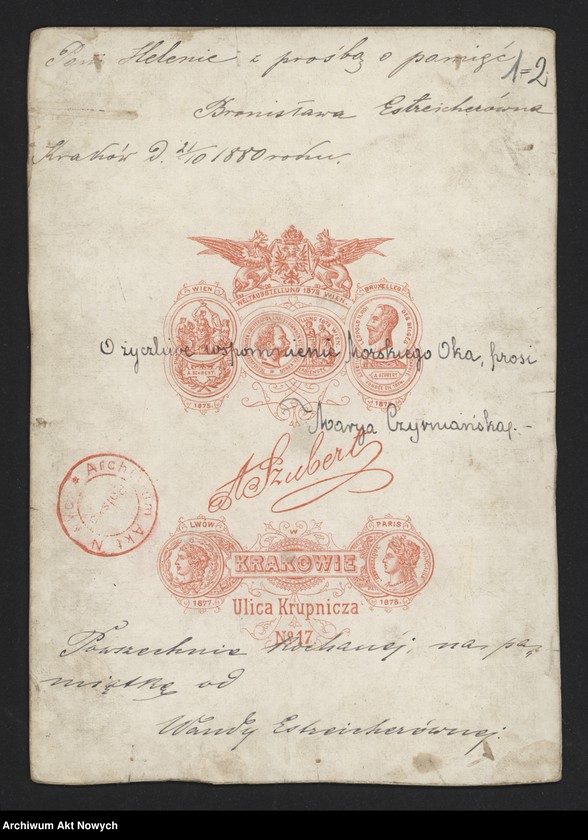 Pani Helenie z prośbą o pamięć
1=2
Bronisława Estreicherówna
Kraków d. 21/10 1880 roku.
WIEN
WELTAUSSTELLUNG 1873 WIEN
BRUXELLES
O życzliwe wspomnienie Morskiego Oka, prosi
1873.
Marya Czyrniańska.-
A Szubert
Archiwum Akt N
LWÓW
W
PARIS
KRAKOWIE
1877.
1878.
Ulica Krupnicza
No 17.
Powszechnie kochanéj, na pa-
miątkę od
Wandy Estreicherównej.
Archiwum Akt Nowych